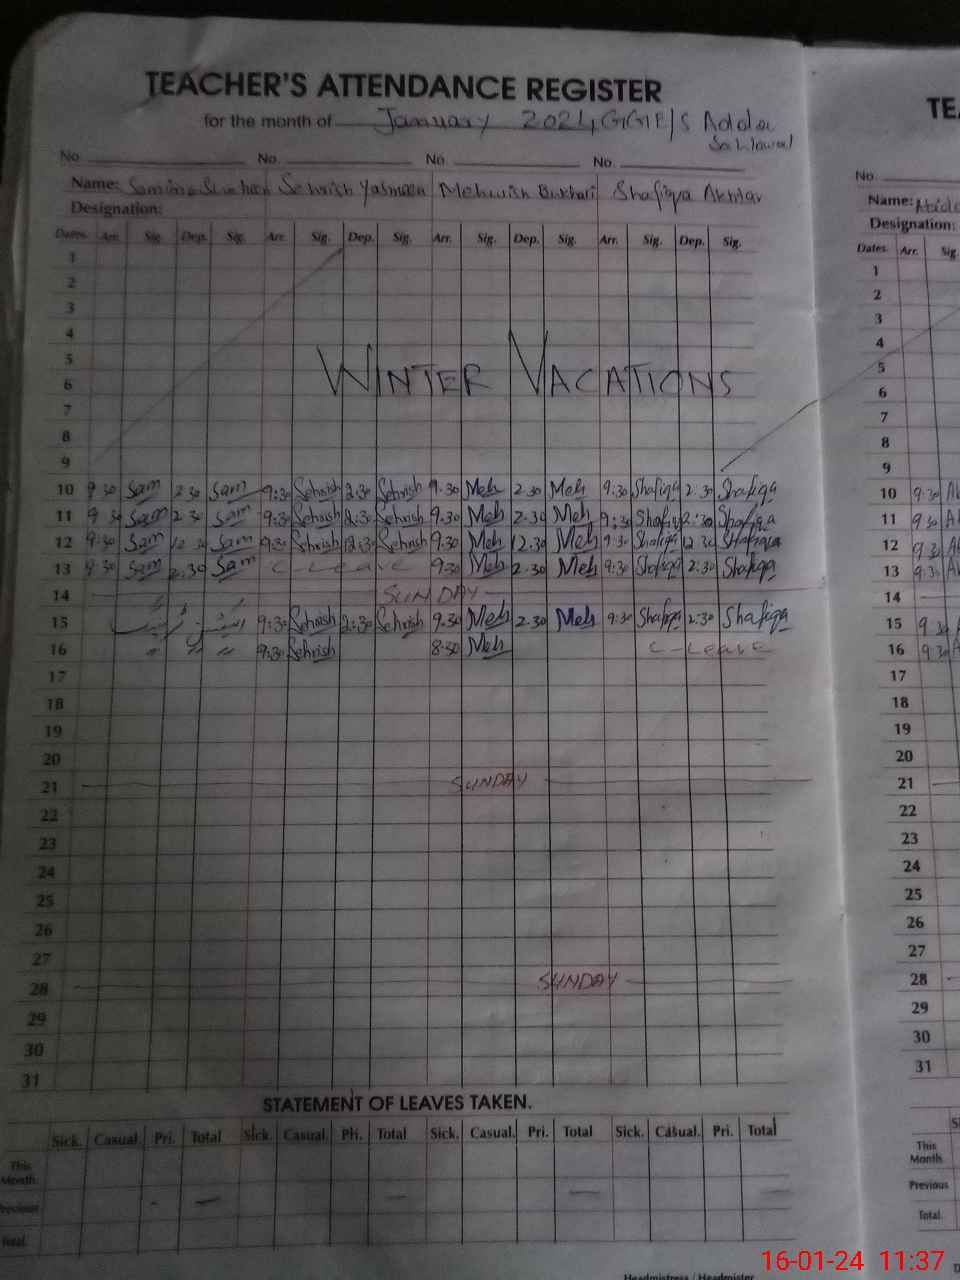 TEACHER'S ATTENDANCE REGISTER
for the month of January 2024 GGE/S Adda
Sahiwal
No. No. No. No.
Name: Sehrish Yasmeen Mehwish Bukhari Shafiqa Akhtar
Designation:
Dates. Arr. Sig. Dep. Sig. Arr. Sig. Dep. Sig. Arr. Sig. Dep. Sig. Arr. Sig. Dep. Sig.
1
2
3
4
5
WINTER VACATIONS
6
7
8
9
10 9:30 Sam 2:30 Sam 9:30 Sehrish 2:30 Sehrish 9.30 Meh 2.30 Meh 9:30 Shafiqa 2:30 Shafiqa
11 9:30 Sam 2:30 Sam 9:30 Sehrish 2:30 Sehrish 9.30 Meh 2.30 Meh 9:30 Shafiqa 2:30 Shafiqa
12 9:30 Sam 12:30 Sam 9:30 Sehrish 12:30 Sehrish 9.30 Meh 12.30 Meh 9:30 Shafiqa 12:30 Shafiqa
13 9:30 Sam 2:30 Sam C-Leave 9.30 Meh 2.30 Meh 9:30 Shafiqa 2:30 Shafiqa
14 SUNDAY
15 9:30 Sehrish 2:30 Sehrish 9.30 Meh 2.30 Meh 9:30 Shafiqa 2:30 Shafiqa
16 〃 〃 〃 9:30 Sehrish 8:50 Meh C-Leave
17
18
19
20
21 SUNDAY
22
23
24
25
26
27
28 SUNDAY
29
30
31
STATEMENT OF LEAVES TAKEN.
Sick. Casual. Pri. Total Sick. Casual. Pri. Total Sick. Casual. Pri. Total Sick. Casual. Pri. Total
This
Month.
Previous
Total.
Headmistress / Headmister
TE
No.
Name:
Designation:
Dates. Arr. Sig
1
2
3
4
5
6
7
8
9
10 9:30
11 9:30
12 9:30
13 9:30
14
15 9:30
16 9:30
17
18
19
20
21
22
23
24
25
26
27
28
29
30
31
This
Month.
Previous
Total.
16-01-24 11:37